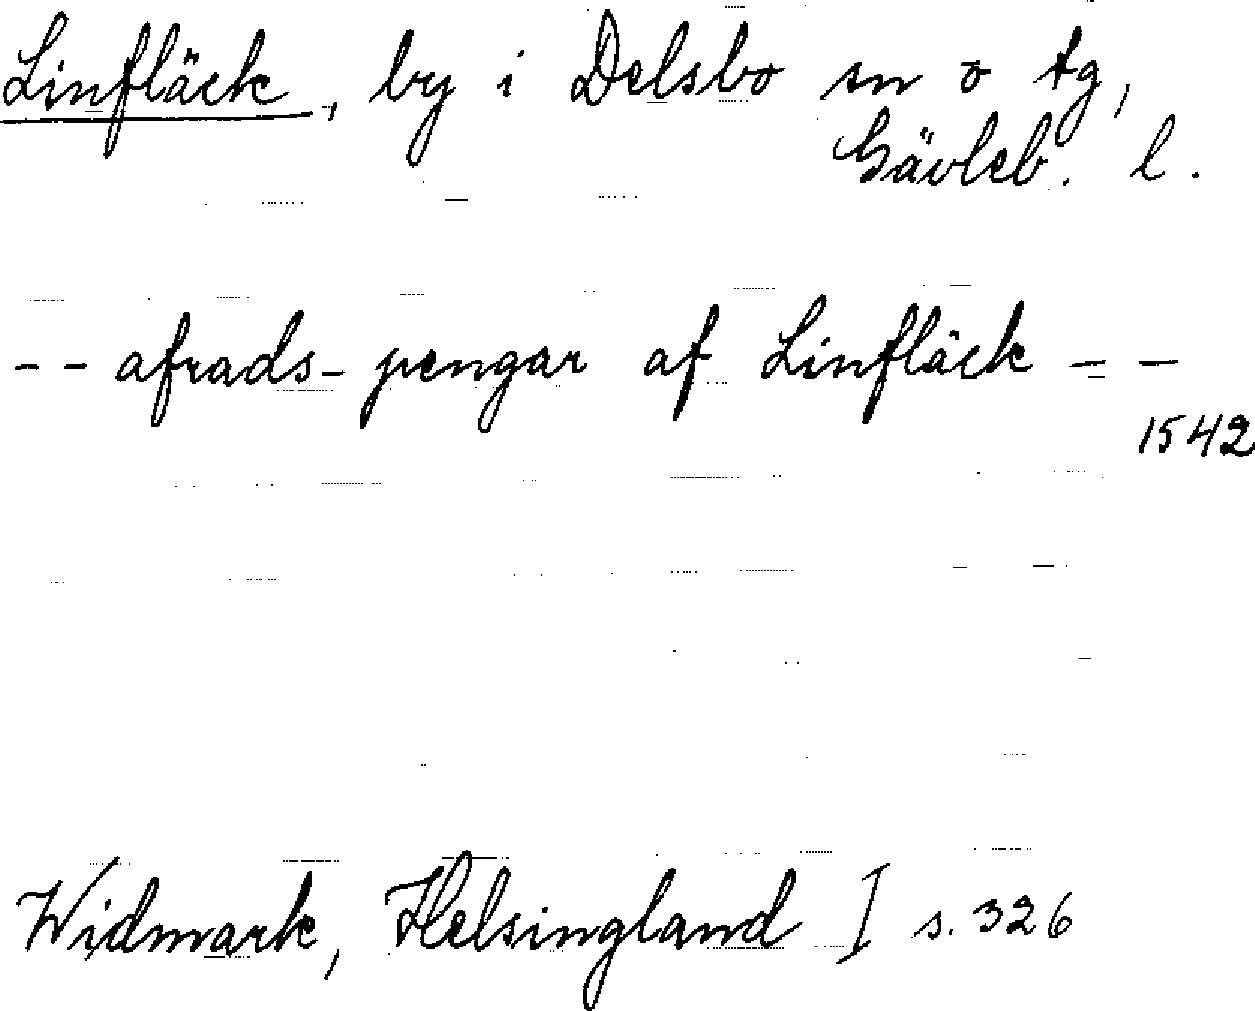 Linfläck, by i Delsbo sn o tg,
Gävleb. l.
-- afrads-pengar af Linfläck --
1542
Widmark, Helsingland I s. 326